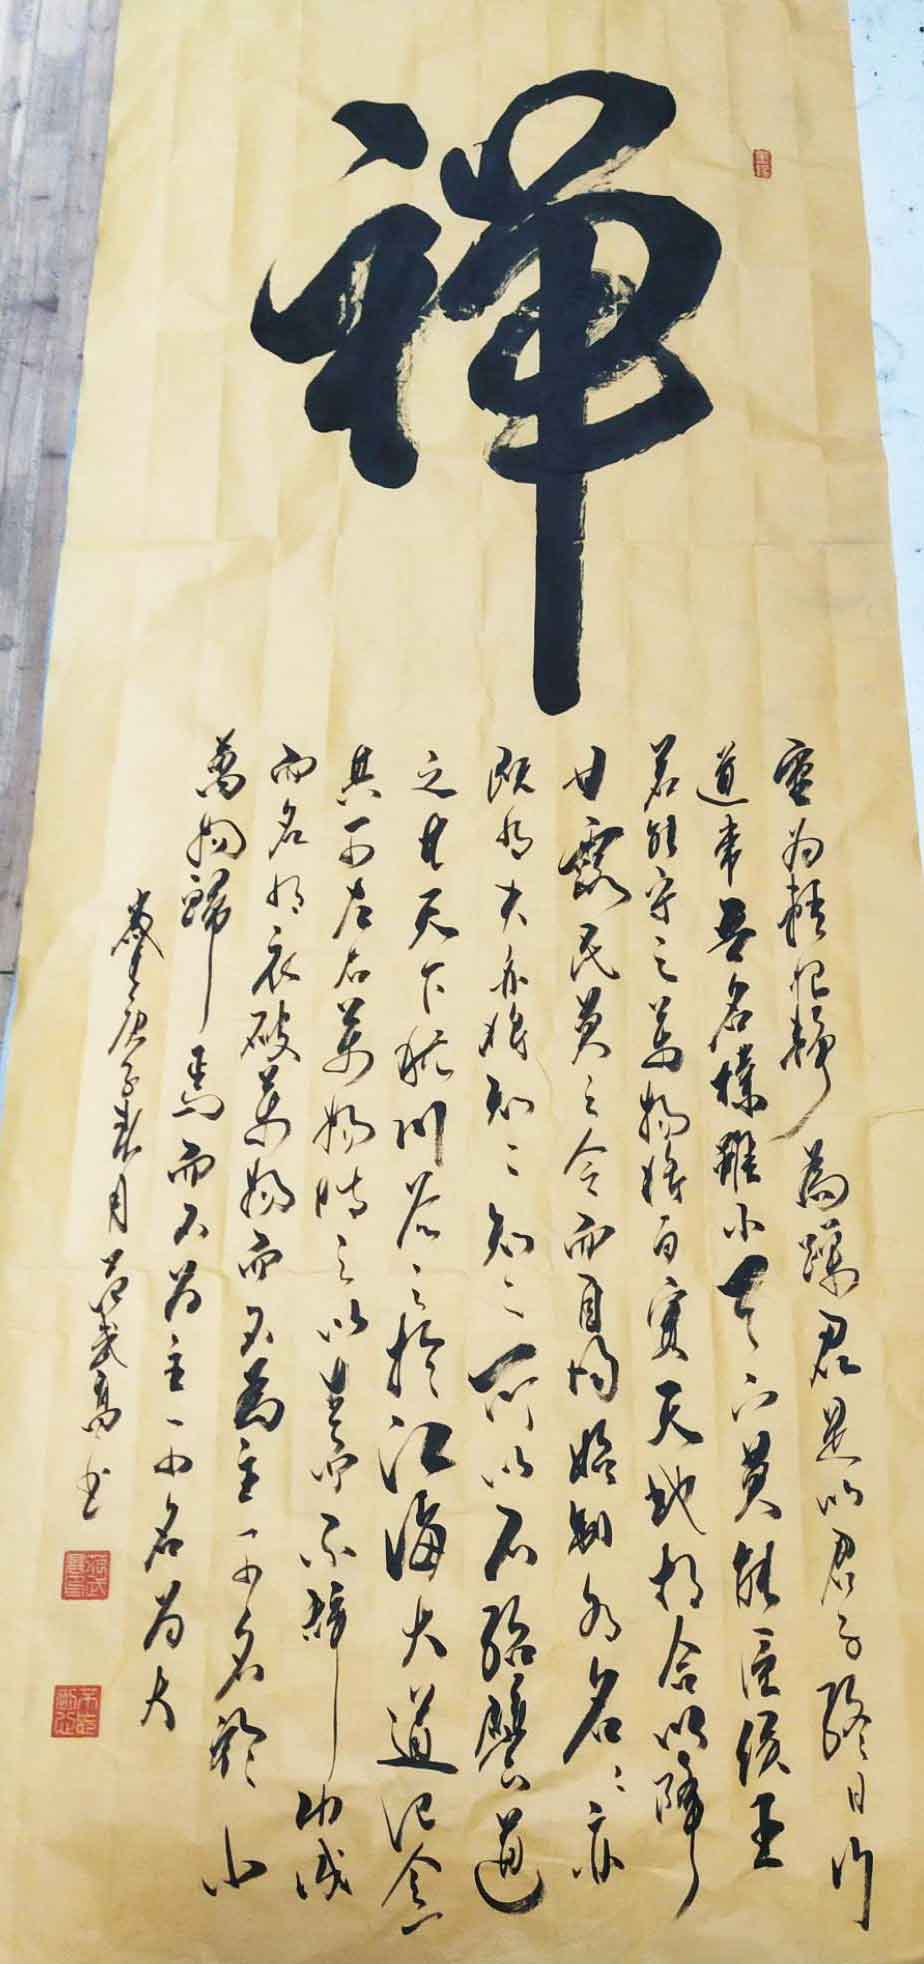 禅
重为轻根静為躁君是以君子终日行
道常無名樸雖小天下莫能臣侯王
若能守之萬物將自賓天地相合以降
甘露民莫之令而自均始制有名名亦
既有夫亦將知知所以不殆譬道
之在天下猶川谷之於江海大道氾兮
其可左右萬物恃之以生而不辭功成
而名有衣被萬物而不為主可名於小
萬物歸焉而不为主可名为大
歲在庚子春月范武高书